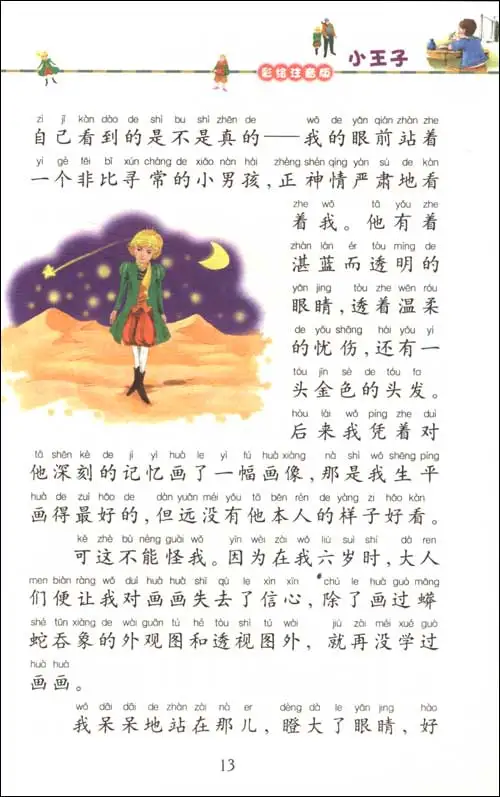 小王子
彩绘注音版
zì jǐ kàn dào de shì bu shì zhēn de wǒ de yǎn qián zhàn zhe
自己看到的是不是真的——我的眼前站着
yí gè fēi bǐ xún cháng de xiǎo nán hái zhèng shén qíng yán sù de kàn
一个非比寻常的小男孩,正神情严肃地看
zhe wǒ tā yǒu zhe
着我。他有着
zhàn lán ér tòu míng de
湛蓝而透明的
yǎn jing tòu zhe wēn róu
眼睛,透着温柔
de yōu shāng hái yǒu yì
的忧伤,还有一
tóu jīn sè de tóu fa
头金色的头发。
hòu lái wǒ píng zhe duì
后来我凭着对
tā shēn kè de jì yì huà le yì fú huà xiàng nà shì wǒ shēng píng
他深刻的记忆画了一幅画像,那是我生平
huà de zuì hǎo de dàn yuǎn méi yǒu tā běn rén de yàng zi hǎo kàn
画得最好的,但远没有他本人的样子好看。
kě zhè bù néng guài wǒ yīn wèi zài wǒ liù suì shí dà ren
可这不能怪我。因为在我六岁时,大人
men biàn ràng wǒ duì huà huà shī qù le xìn xīn chú le huà guò mǎng
们便让我对画画失去了信心,除了画过蟒
shé tūn xiàng de wài guān tú hé tòu shì tú wài jiù zài méi xué guò
蛇吞象的外观图和透视图外,就再没学过
huà huà
画画。
wǒ dāi dāi de zhàn zài nà er dèng dà le yǎn jing hǎo
我呆呆地站在那儿,瞪大了眼睛,好
13